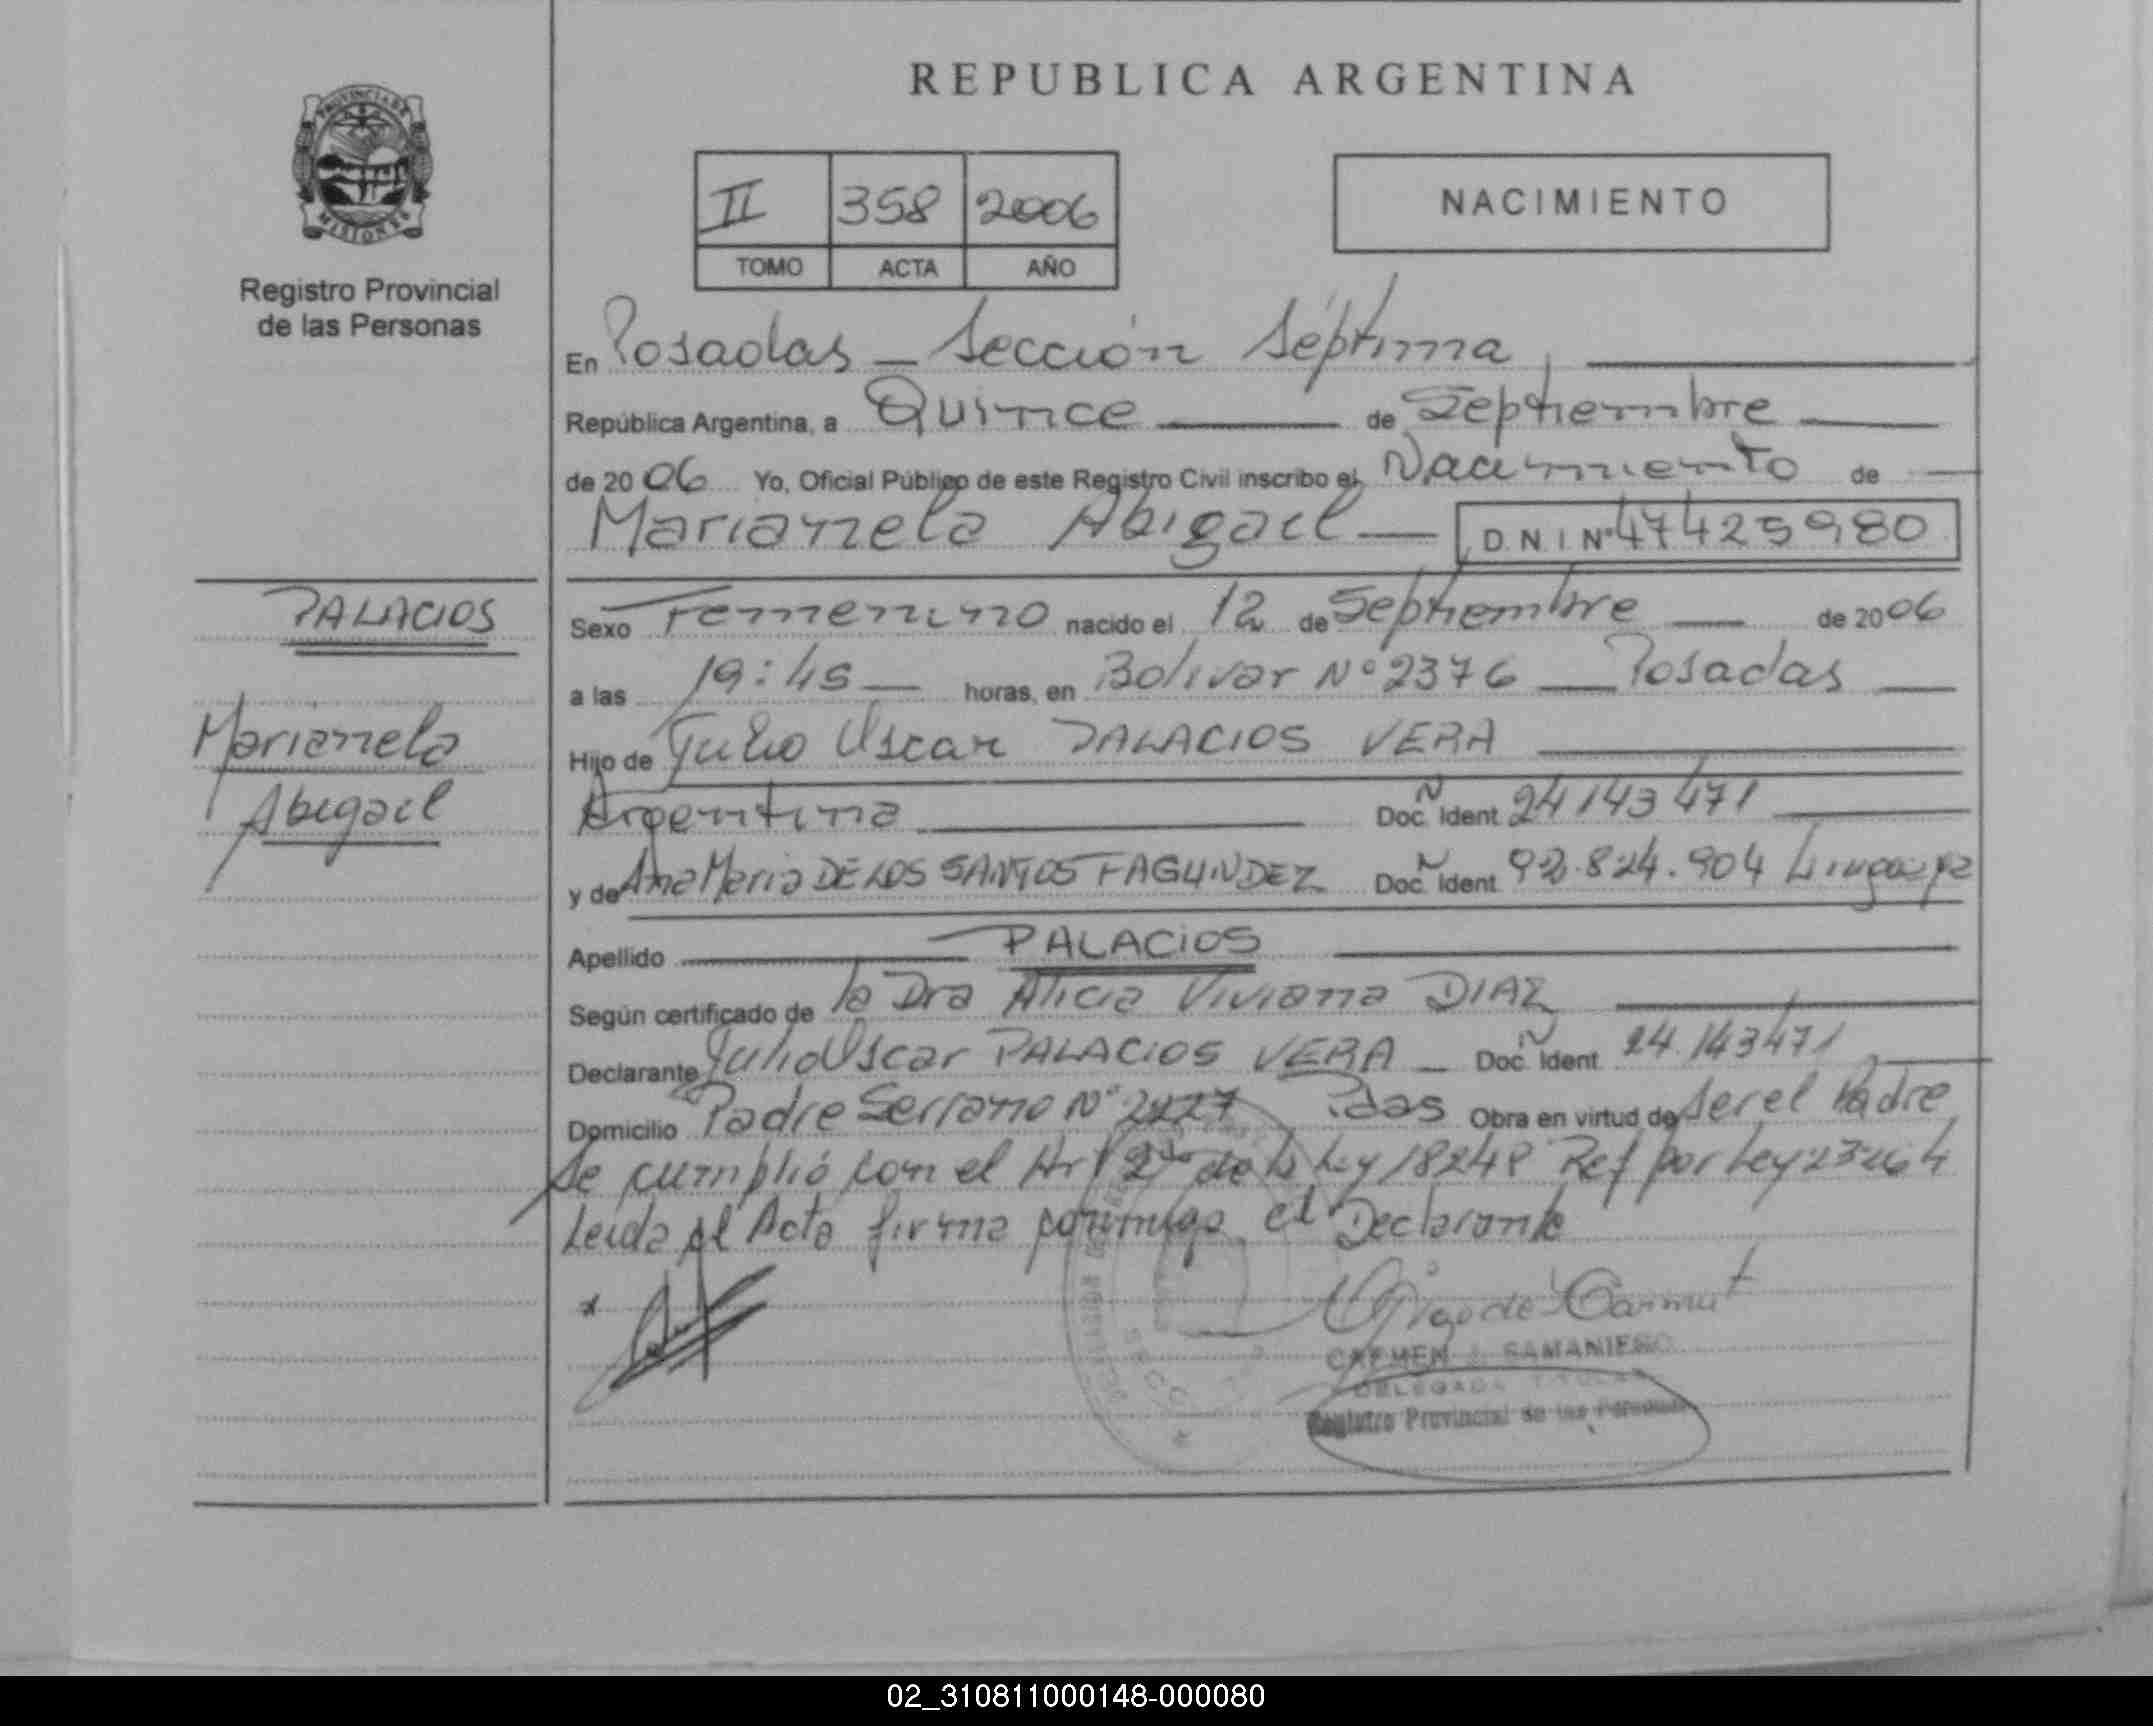 REPUBLICA ARGENTINA
PROVINCIA DE
MISIONES
Registro Provincial
de las Personas
II 358 2006
TOMO ACTA AÑO
NACIMIENTO
En Posadas - Sección Séptima,
República Argentina, a Quince de Septiembre
de 2006 Yo, Oficial Público de este Registro Civil inscribo el Nacimiento de
Marianela Abigael D.N.I Nº 47425980
PALACIOS
Marianela
Abigael
Sexo Femenino nacido el 12 de Septiembre de 2006
a las 19:45 horas, en Bolivar Nº 2376 Posadas
Hijo de Julio Oscar PALACIOS VERA
Argentina Doc. Ñ Ident 24143471
y de Ana Maria DE LOS SANTOS FAGUNDEZ Doc. Ñ Ident 92.824.904
Apellido PALACIOS
Según certificado de la Dra Alicia Viviana DIAZ
Declarante Julio Oscar PALACIOS VERA Doc. Ñ Ident 24.143471
Domicilio Padre Serrano Nº Pdas Obra en virtud de ser el Padre
Se cumplió con el Art 2do de la Ley 18248 Ref por Ley 23264
Leida el Acta firma conmigo el Declarante
CARMEN SAMANIEGO
DELEGADA TITULAR
Registro Provincial de las Personas
02_310811000148-000080